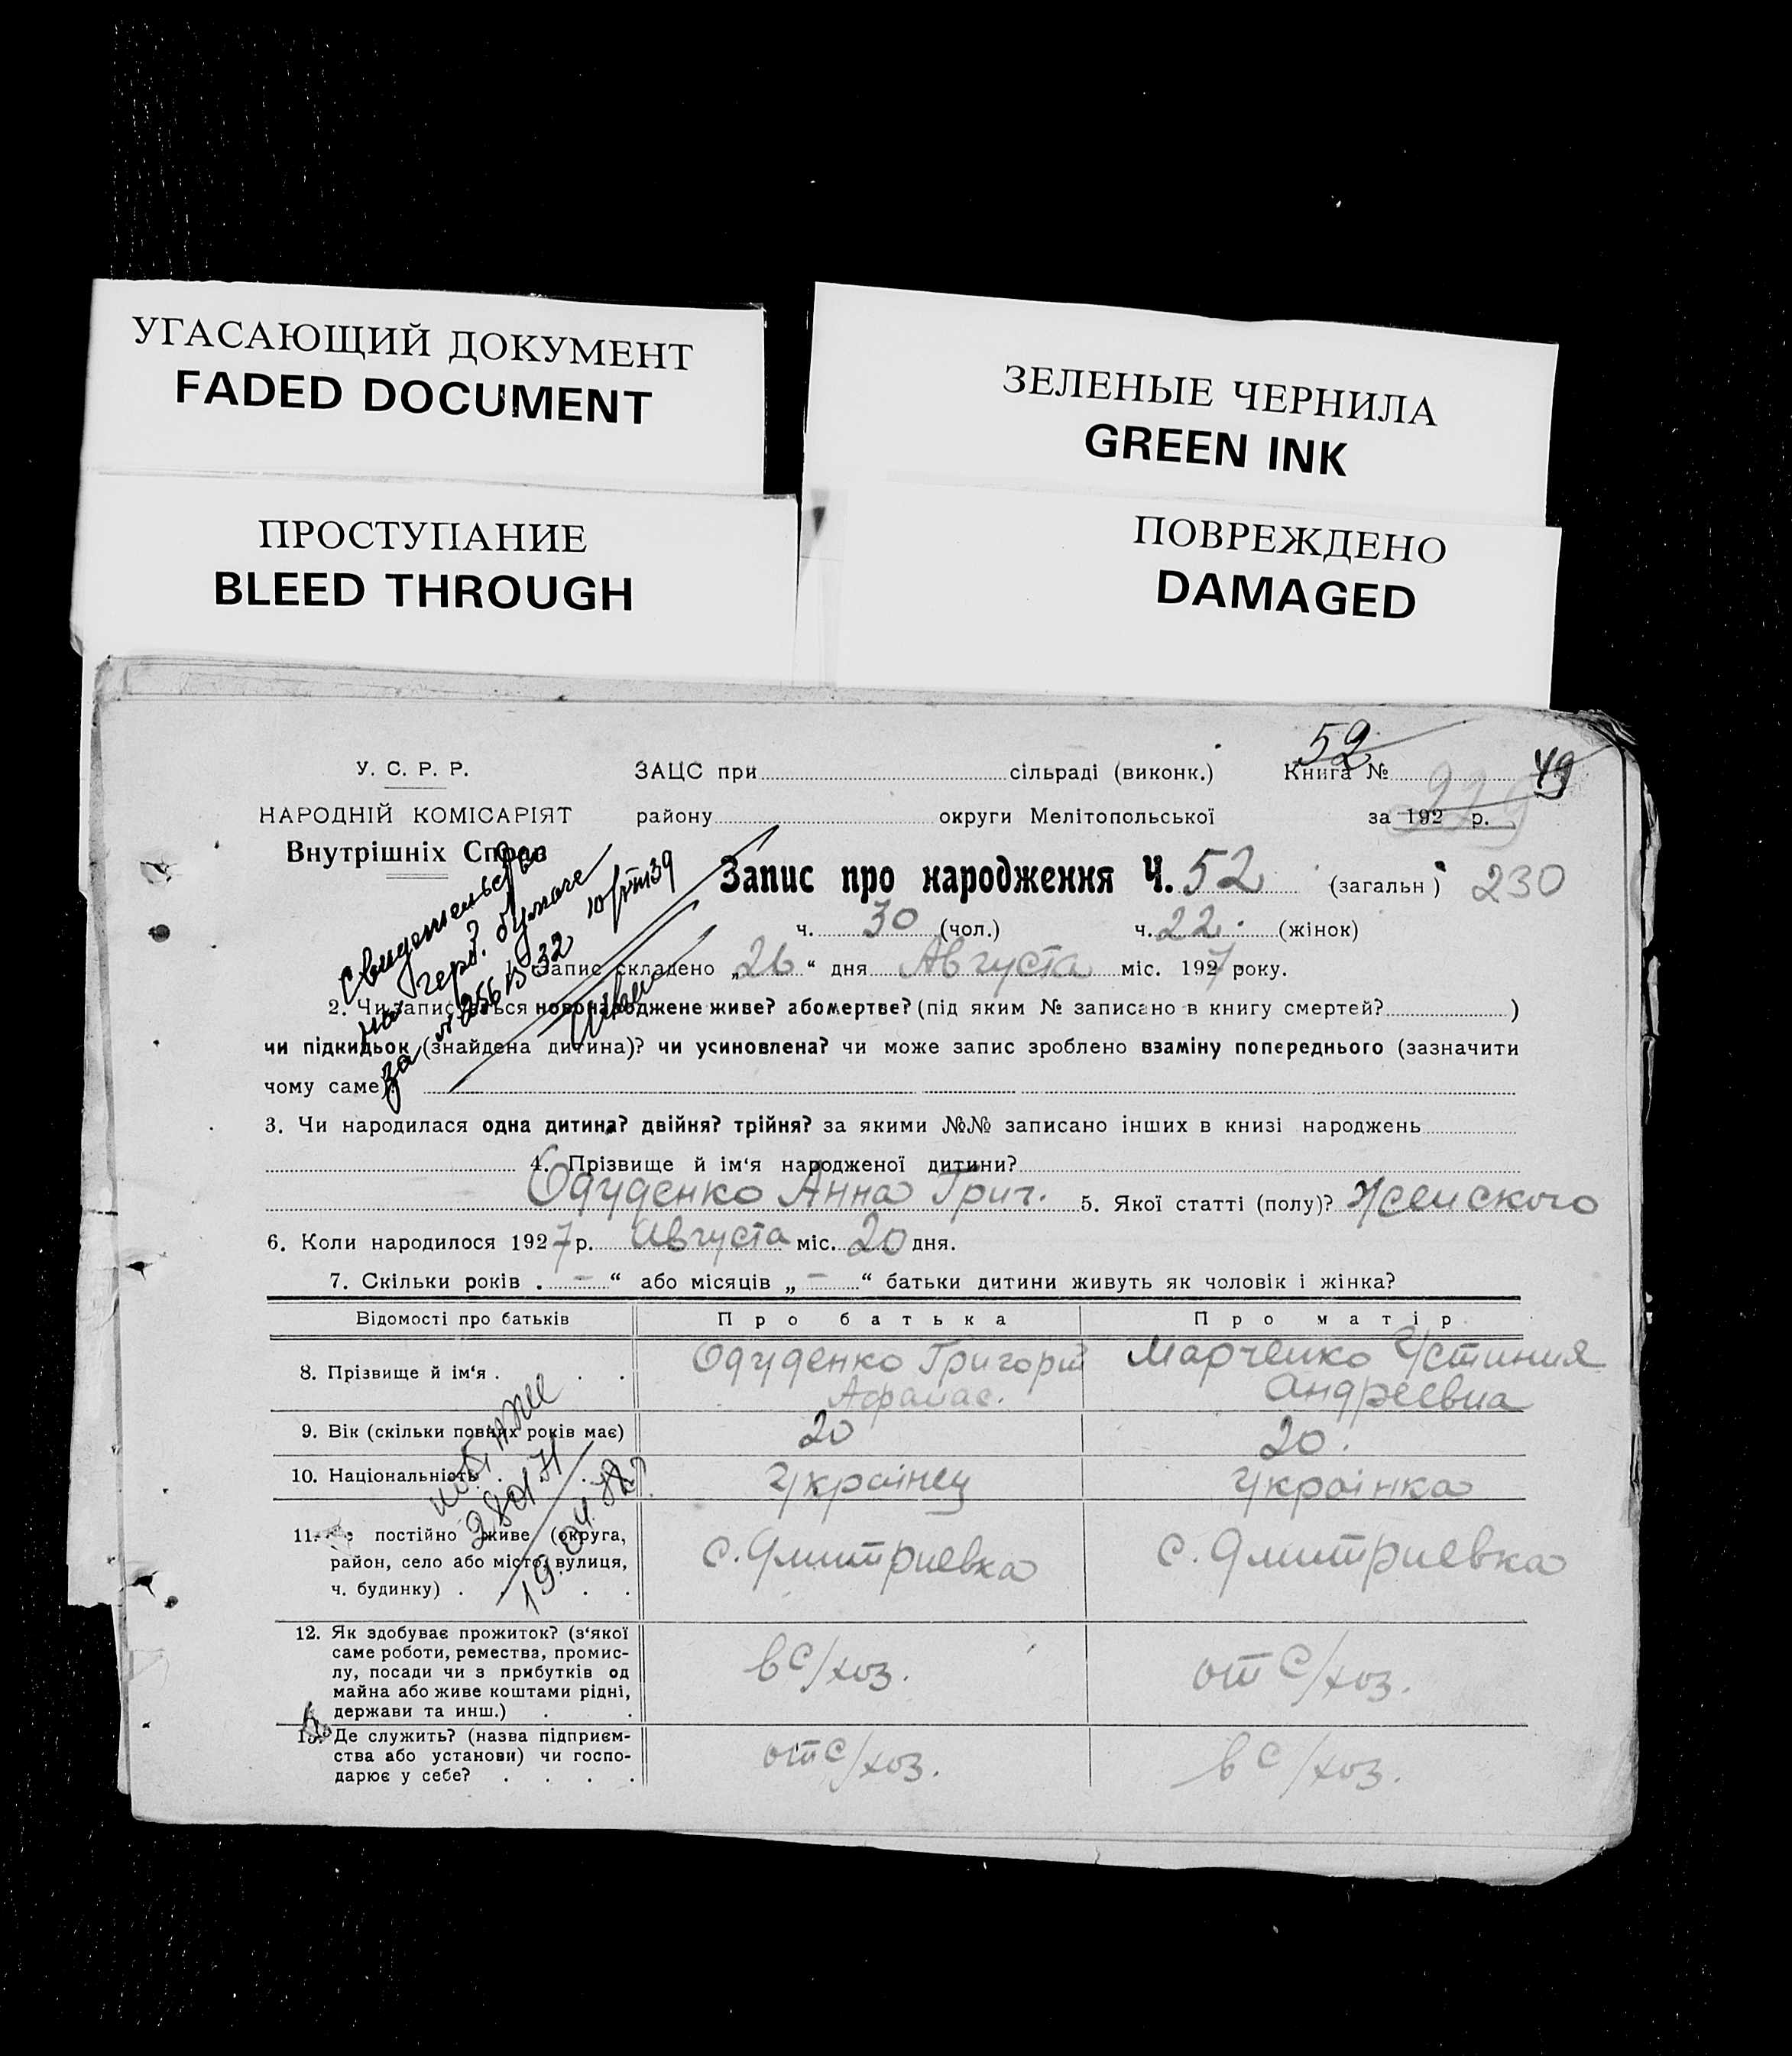 УГАСАЮЩИЙ ДОКУМЕНТ
FADED DOCUMENT
ЗЕЛЕНЫЕ ЧЕРНИЛА
GREEN INK
ПРОСТУПАНИЕ
BLEED THROUGH
ПОВРЕЖДЕНО
DAMAGED
52
У. С. Р. Р. ЗАЦС при сільраді (виконк.) Книга № 49
НАРОДНІЙ КОМІСАРІЯТ району округи Мелітопольської за 192 р.
Внутрішніх Справ
Запис про народження Ч. 52 (загальн) 230
ч. 30 (чол.) ч. 22. (жінок)
Свидетельство
герб. бумаге
10/VIII 39
1. Запис складено „26“ дня Августа міс. 1927 року.
2. Чи записується новонароджене живе? або мертве? (під яким № записано в книгу смертей? )
чи підкидьок (знайдена дитина)? чи усиновлена? чи може запис зроблено взаміну попереднього (зазначити
чому саме)
3. Чи народилася одна дитина? двійня? трійня? за якими №№ записано інших в книзі народжень
4. Прізвище й ім‘я народженої дитини?
Одуденко Анна Григ. 5. Якої статті (полу)? Женского
6. Коли народилося 1927 р. Августа міс. 20 дня.
7. Скільки років . – “ або місяців „ – “ батьки дитини живуть як чоловік і жінка?
Відомості про батьків Про батька Про матір
8. Прізвище й ім‘я . . . Одуденко Григорій Марченко Устиния
Афанас. Андреевна
9. Вік (скільки повних років має) 20 20.
10. Національність Украінец Украінка
11. постійно живе (округа,
район, село або місто, вулиця,
ч. будинку) . . .
с. Дмитриевка с. Дмитриевка
12. Як здобуває прожиток? (з‘якої
саме роботи, ремества, промис-
лу, посади чи з прибутків од
майна або живе коштами рідні,
держави та инш.) . .
в с/хоз. от с/хоз.
13. Де служить? (назва підприєм-
ства або установи) чи госпо-
дарює у себе? . . . .
от с/хоз. в с/хоз.